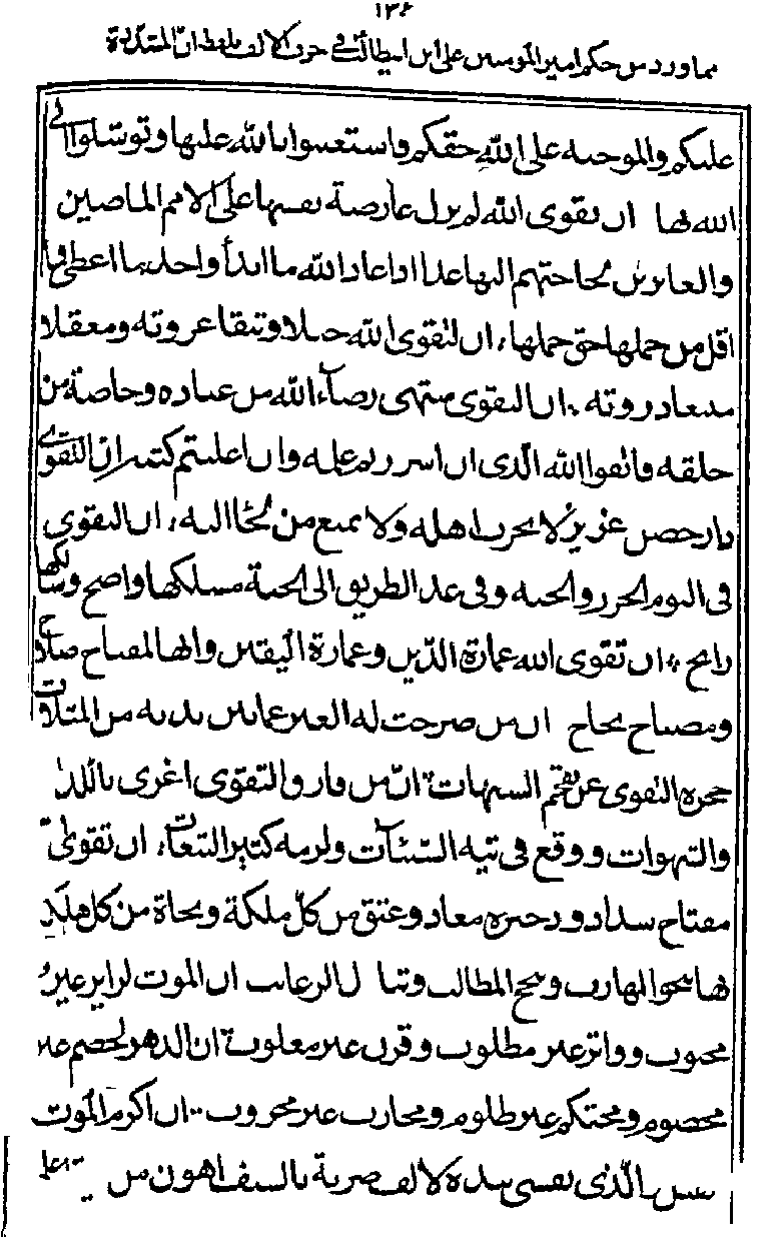 ١٣٤
مما ورد من حكم امير المؤمنين علي ابن ابيطالب في حرف الالف بلفظ ان المشددة
عليكم والموجبة على الله حقكم واستعينوا بالله عليها وتوسلوا الى
الله بها ان تقوى الله لم يزل عارضة نفسها على الامم الماضين
والغابرين لحاجتهم اليها غدا اذا عاد الله ما ابدأ واخذ ما اعطى فما
اقل من حملها حق حملها، ان لتقوى الله حبلا وثيقا عروته ومعقلا
منيعا ذروته ، ان التقوى منتهى رضآء الله من عباده وحاجته من
خلقه فاتقوا الله الذى ان اسررتم علمه وان اعلنتم كتبه ان التقوى
دار حصن عزيز لا يحرب اهله ولا يمنع من لجأ اليه، ان التقوى
فى اليوم الحرز والجنه وفى غد الطريق الى الجنة مسلكها واضح وسالكها
رابح ، ان تقوى الله عمارة الدّين وعمارة اليقين وانها لمفتاح صلاح
ومصباح نجاح ان من صرحت له العبر عما بين يديه من المثلات
حجزه التقوى عن تقحم الشبهات ان من فارق التقوى اغرى باللذات
والشهوات ووقع فى تيه السّيئآت ولزمه كثير التبعات، ان تقوى
مفتاح سداد وذخيرة معاد وعتق من كلّ ملكة ونجاة من كل هلكة
بها ينجو الهارب وينجح المطالب وتنال الرغائب ان الموت لزاير غير
محبوب وواتر غير مطلوب وقرن غير مغلوب ان الدهر لخصم غير
مخصوم ومحتكم غير ظلوم ومحارب غير محروب ان اكرم الموت
والّذى نفسى بيده لالف ضربة بالسيف اهون من